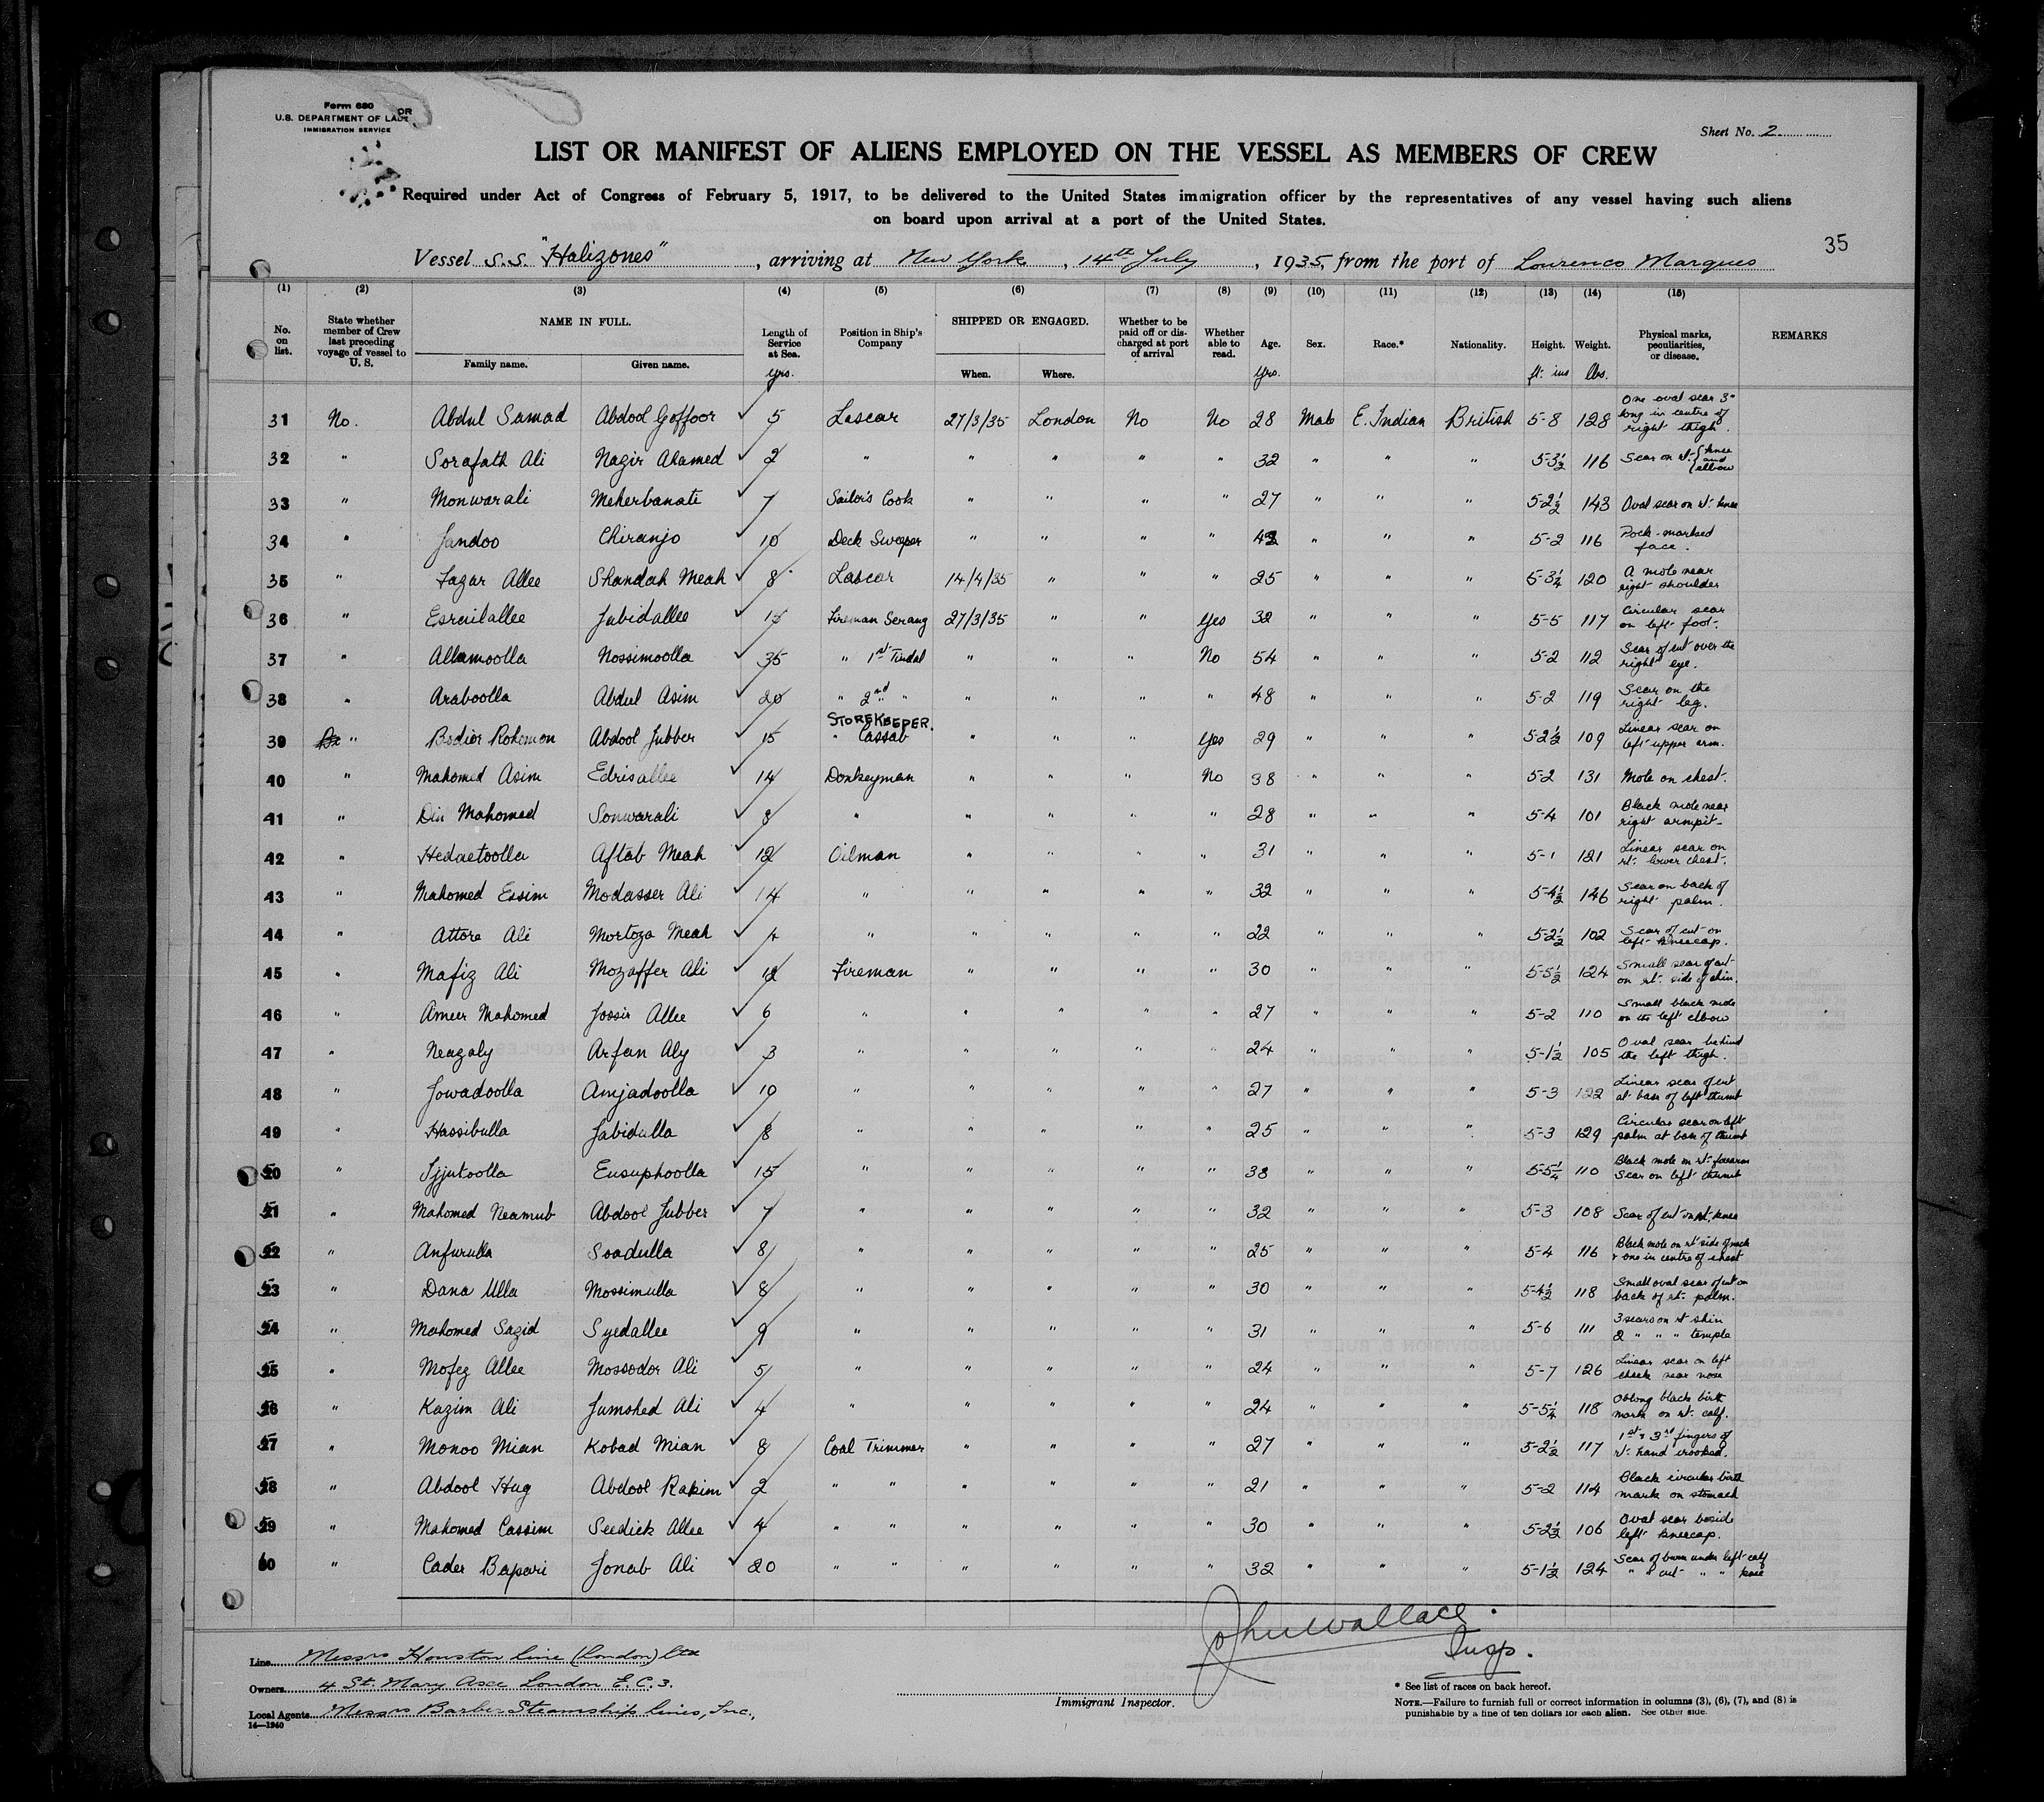 Form 680
U.S. DEPARTMENT OF LABOR
IMMIGRATION SERVICE
Sheet No. 2
LIST OR MANIFEST OF ALIENS EMPLOYED ON THE VESSEL AS MEMBERS OF CREW
Required under Act of Congress of February 5, 1917, to be delivered to the United States immigration officer by the representatives of any vessel having such aliens
on board upon arrival at a port of the United States.
35
Vessel S.S. "Halizones", arriving at New York, 14th July, 1935, from the port of Lourenco Marques
(1) (2) (3) (4) (5) (6) (7) (8) (9) (10) (11) (12) (13) (14) (15)
No. on list. State whether member of Crew last preceding voyage of vessel to U. S. NAME IN FULL. Family name. Given name. Length of Service at Sea. yrs. Position in Ship's Company SHIPPED OR ENGAGED. When. Where. Whether to be paid off or discharged at port of arrival Whether able to read. Age. yrs. Sex. Race.* Nationality. Height. ft: ins Weight. lbs. Physical marks, peculiarities, or disease. REMARKS
31 No. Abdul Samad Abdool Goffoor ✓ 5 Lascar 27/3/35 London No No 28 Male E. Indian British 5-8 128 One oval scar 3" long in centre of right thigh.
32 " Sorafath Ali Nazir Ahamed ✓ 2 " " " " " 32 " " " 5-3½ 116 Scar on rt: { knee and elbow
33 " Monwarali Meherbanati ✓ 7 Sailor's Cook " " " " 27 " " " 5-2½ 143 Oval scar on rt: knee
34 " Jandoo Chiranjo ✓ 10 Deck Sweeper " " " " 42 " " " 5-2 116 Pock-marked face.
35 " Fazar Allee Shandah Meah ✓ 8 Lascar 14/4/35 " " " 25 " " " 5-3¼ 120 A mole near right shoulder
36 " Esrailallee Jabidallee ✓ 15 Fireman Serang 27/3/35 " " Yes 32 " " " 5-5 117 Circular scar on left foot.
37 " Allamoolla Nossimoolla ✓ 35 " 1st Tindal " " " No 54 " " " 5-2 112 Scar of cut over the right eye.
38 " Araboolla Abdul Asim ✓ 20 " 2nd " " " " " 48 " " " 5-2 119 Scar on the right leg.
39 " Bodior Rohomon Abdool Jubber ✓ 15 STOREKEEPER. " Cassab " " " Yes 29 " " " 5-2½ 109 Linear scar on left upper arm.
40 " Mahomed Asim Edrisallee ✓ 14 Donkeyman " " " No 38 " " " 5-2 131 Mole on chest.
41 " Din Mahomed Sonwarali ✓ 8 " " " " " 28 " " " 5-4 101 Black mole near right armpit
42 " Hedaetoolla Aftab Meah ✓ 12 Oilman " " " " 31 " " " 5-1 121 Linear scar on rt: lower chest.
43 " Mahomed Essim Modasser Ali ✓ 14 " " " " " 32 " " " 5-4½ 146 Scar on back of right palm.
44 " Attora Ali Mortoza Meah ✓ 4 " " " " " 22 " " " 5-2½ 102 Scar of cut on left kneecap.
45 " Mafiz Ali Mozaffer Ali ✓ 12 Fireman " " " " 30 " " " 5-5½ 124 Small scar of cut on rt: side of chin.
46 " Ameer Mahomed Jossir Allee ✓ 6 " " " " " 27 " " " 5-2 110 Small black mole on the left elbow
47 " Neazaly Arfan Aly ✓ 3 " " " " " 24 " " " 5-1½ 105 Oval scar behind the left thigh.
48 " Jowadoolla Amjadoolla ✓ 10 " " " " " 27 " " " 5-3 122 Linear scar of cut at base of left thumb
49 " Hassibulla Jabidulla ✓ 8 " " " " " 25 " " " 5-3 129 Circular scar on left palm at base of thumb
50 " Ijjutoolla Eusuphoolla ✓ 15 " " " " " 38 " " " 5-5¼ 110 Black mole on rt: forearm Scar on left thumb
51 " Mahomed Neamub Abdool Jubber ✓ 7 " " " " " 32 " " " 5-3 108 Scar of cut on rt: knee
52 " Anfurulla Soadulla ✓ 8 " " " " " 25 " " " 5-4 116 Black mole on rt side of neck + one in centre of chest
53 " Dana Ulla Mossimulla ✓ 8 " " " " " 30 " " " 5-4½ 118 Small oval scar of cut on back of rt: palm.
54 " Mahomed Sazid Syedallee ✓ 9 " " " " " 31 " " " 5-6 111 3 scars on rt shin 2 " " " temple
55 " Mofez Allee Mossodor Ali ✓ 5 " " " " " 24 " " " 5-7 126 Linear scar on left cheek near nose
56 " Kazim Ali Jumshed Ali ✓ 4 " " " " " 24 " " " 5-5¼ 118 Oblong black birth mark on rt: calf.
57 " Monoo Mian Kobad Mian ✓ 8 Coal Trimmer " " " " 27 " " " 5-2½ 117 1st & 3rd fingers of rt: hand crooked.
58 " Abdool Hug Abdool Rahim ✓ 2 " " " " " " 21 " " " 5-2 114 Black circular birth mark on stomach
59 " Mahomed Cassim Seedick Allee ✓ 4 " " " " " " 30 " " " 5-2½ 106 Oval scar beside left kneecap.
60 " Cader Bapari Jonab Ali ✓ 20 " " " " " " 32 " " " 5-1½ 124 Scar of burn under left calf " " cut " " knee
John Wallace.
Insp.
Line Messrs Houston Line (London) Ltd
Owners 4 St. Mary Axe London E.C.3.
Local Agents Messrs Barber Steamship Lines, Inc.,
14—1940
Immigrant Inspector.
* See list of races on back hereof.
NOTE.—Failure to furnish full or correct information in columns (3), (6), (7), and (8) is
punishable by a fine of ten dollars for each alien. See other side.